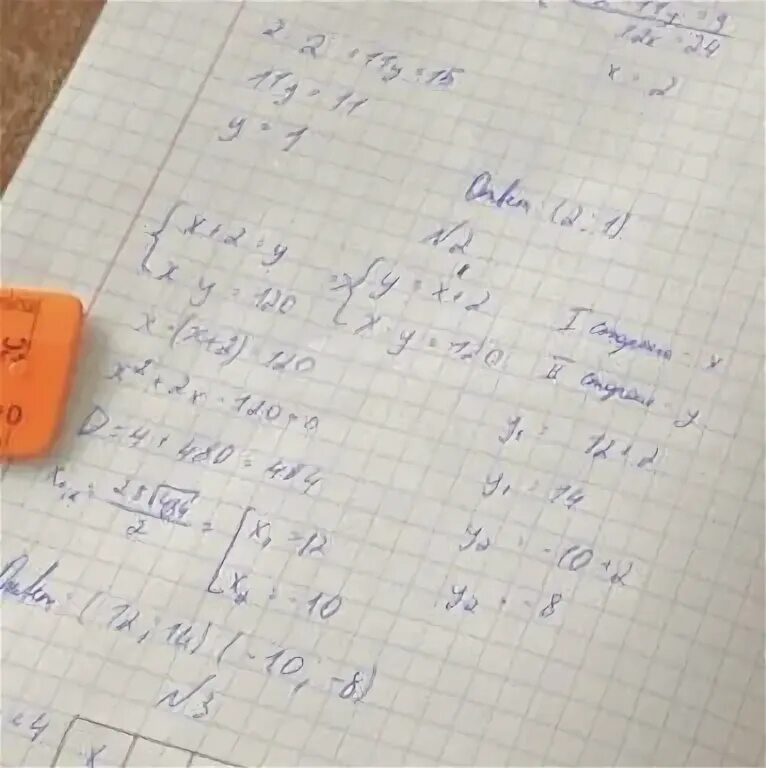 12x = 24
x = 2
2·2 + 11y = 15
11y = 11
y = 1
Ответ: (2; 1)
№2
{x+2=y
{x y = 120
=> {y = x+2
{x·y = 120
I сторона - x
II сторона - y
x·(x+2)=120
x²+2x-120=0
D=4+480=484
x₁,₂ = 
2
= [x₁=12
[x₂=-10
y₁ = 12+2
y₁ = 14
y₂ = -10+2
y₂ = -8
Ответ: (12; 14) (-10; -8)
№3
x